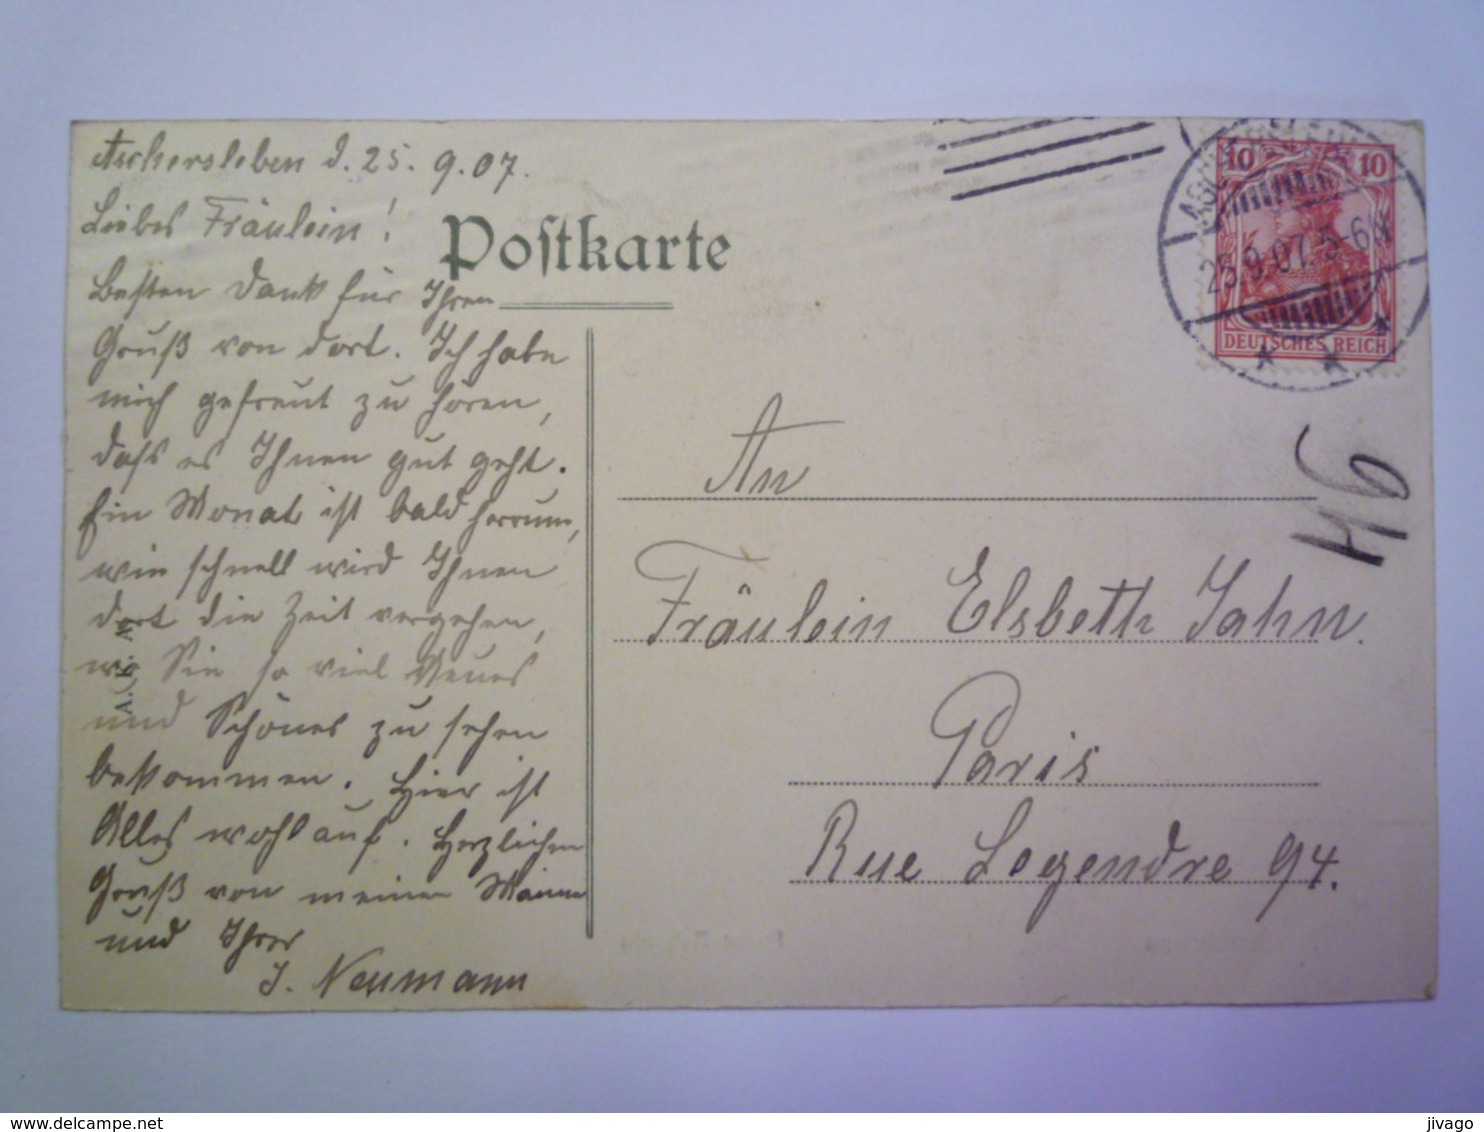 Aschersleben d. 25. 9. 07.
Liebes Fräulein!
Postkarte
Besten Dank für Ihren
Gruß von dort. Ich habe
mich gefreut zu hören,
daß es Ihnen gut geht.
Ein Monat ist bald herum,
wie schnell wird Ihnen
dort die Zeit vergehen,
wo Sie so viel Neues
und Schönes zu sehen
bekommen. Hier ist
Alles wohlauf. Herzlichen
Gruß von meiner Mama
und Ihrer
J. Neumann
An
Fräulein Elsbeth Jahn.
Paris
Rue Legendre 94.
46
10 10
DEUTSCHES REICH
25.9.07. 5-6N
delcampe.net
jivago